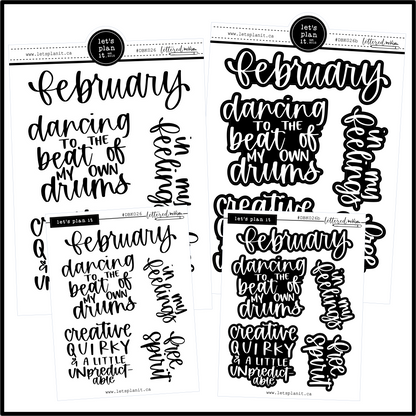 let's
plan
it
www.letsplanit.ca
#DBK026
lettered
february
dancing
TO THE
beat of
MY OWN
drums
in my
feelings
let's
plan
it
www.letsplanit.ca
#DBK026b
lettered
february
dancing
TO THE
beat of
MY OWN
drums
in my
feelings
creative
free
let's plan it
#DBK026
lettered
february
dancing
TO THE
beat of
MY OWN
drums
in my
feelings
creative
QUIRKY
& A LITTLE
UNPREDICT-
ABLE
free
spirit
www.letsplanit.ca
let's plan it
#DBK026b
lettered
february
dancing
TO THE
beat of
MY OWN
drums
in my
feelings
creative
QUIRKY
& A LITTLE
UNPREDICT-
ABLE
free
spirit
www.letsplanit.ca